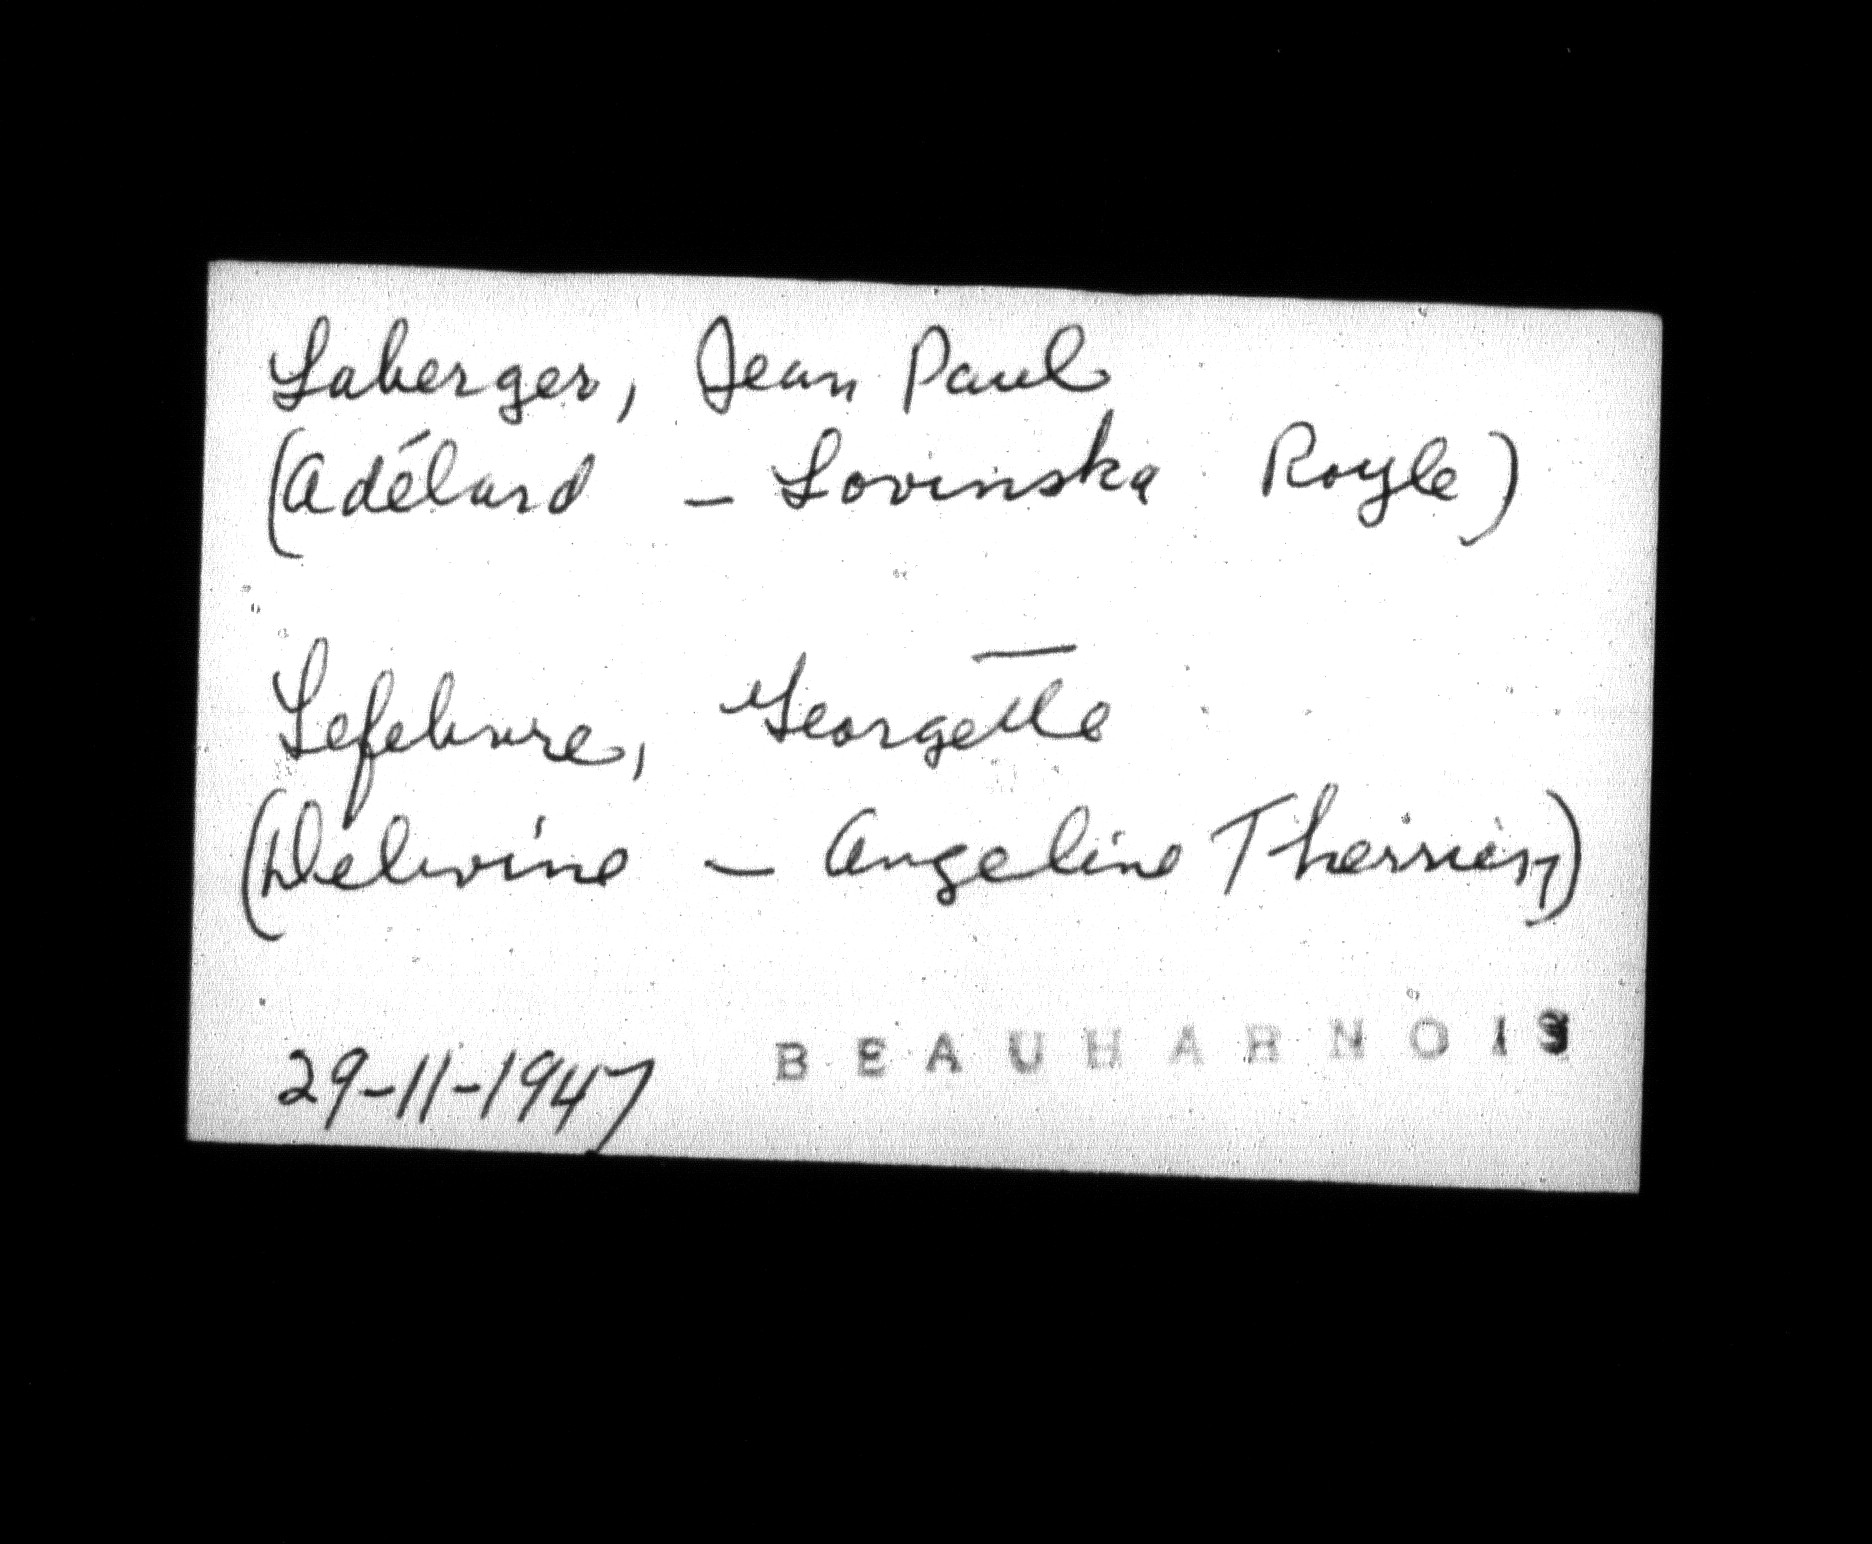 Laberger, Jean Paul
(Adélard - Lovinska Royle)
Lefebvre, Georgette
(Delvine - Angeline Therrien)
29-11-1947 BEAUHARNOIS